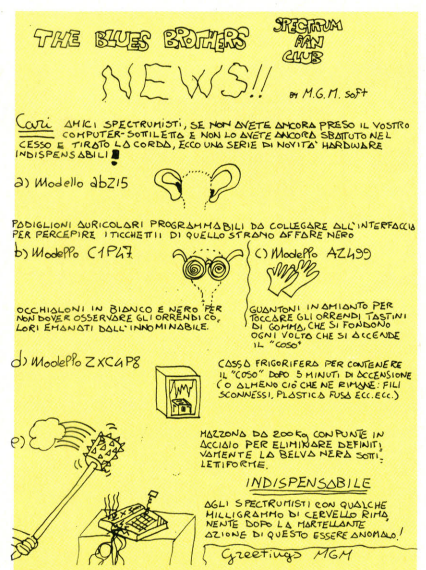 THE BLUES BROTHERS SPECTRUM FAN CLUB
NEWS!!
BY M.G.M. SOFT
Cari AMICI SPECTRUMISTI, SE NON AVETE ANCORA PRESO IL VOSTRO
COMPUTER-SOTTILETTA E NON LO AVETE ANCORA SBATTUTO NEL
CESSO E TIRATO LA CORDA, ECCO UNA SERIE DI NOVITA' HARDWARE
INDISPENSABILI!
a) Modello abZ15
PADIGLIONI AURICOLARI PROGRAMMABILI DA COLLEGARE ALL'INTERFACCIA
PER PERCEPIRE I TICCHETTII DI QUELLO STRANO AFFARE NERO
b) Modello C1P47
OCCHIALONI IN BIANCO E NERO PER
NON DOVER OSSERVARE GLI ORRENDI CO,
LORI EMANATI DALL'INNOMINABILE.
c) Modello AZ499
GUANTONI IN AMIANTO PER
TOCCARE GLI ORRENDI TASTINI
DI GOMMA, CHE SI FONDONO
OGNI VOLTA CHE SI ACCENDE
IL "COSO"
d) Modello ZXC4P8
CASSA FRIGORIFERA PER CONTENERE
IL "COSO" DOPO 5 MINUTI DI ACCENSIONE
(O ALMENO CIÓ CHE NE RIMANE: FILI
SCONNESSI, PLASTICA FUSA ECC. ECC.)
e)
MAZZONA DA 200 KG CON PUNTE IN
ACCIAIO PER ELIMINARE DEFINITI,
VAMENTE LA BELVA NERA SOTTI,
LETIFORME.
INDISPENSABILE
AGLI SPECTRUMISTI CON QUALCHE
MILLIGRAMMO DI CERVELLO RIMA,
NENTE DOPO LA MARTELLANTE
AZIONE DI QUESTO ESSERE ANOMALO!
Greetings MGM